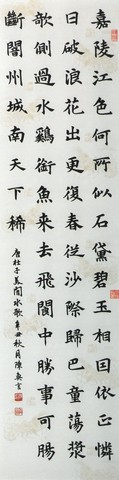 嘉陵江色何所似石黛碧玉相因依正憐
日破浪花出更復春從沙際歸巴童蕩槳
欹側過水鷄銜魚來去飛閬中勝事可腸
斷閬州城南天下稀
唐杜子美閬水歌辛丑秋月陳